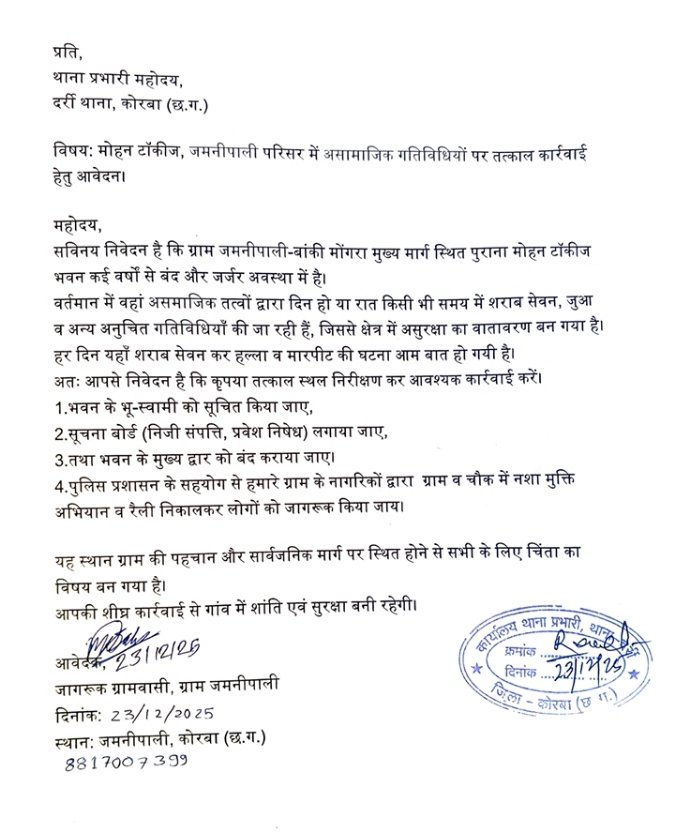 प्रति,
थाना प्रभारी महोदय,
दर्री थाना, कोरबा (छ.ग.)
विषय: मोहन टॉकीज, जमनीपाली परिसर में असामाजिक गतिविधियों पर तत्काल कार्रवाई
हेतु आवेदन।
महोदय,
सविनय निवेदन है कि ग्राम जमनीपाली-बांकी मोंगरा मुख्य मार्ग स्थित पुराना मोहन टॉकीज
भवन कई वर्षों से बंद और जर्जर अवस्था में है।
वर्तमान में वहां असमाजिक तत्वों द्वारा दिन हो या रात किसी भी समय में शराब सेवन, जुआ
व अन्य अनुचित गतिविधियाँ की जा रही हैं, जिससे क्षेत्र में असुरक्षा का वातावरण बन गया है।
हर दिन यहाँ शराब सेवन कर हल्ला व मारपीट की घटना आम बात हो गयी है।
अतः आपसे निवेदन है कि कृपया तत्काल स्थल निरीक्षण कर आवश्यक कार्रवाई करें।
1.भवन के भू-स्वामी को सूचित किया जाए,
2.सूचना बोर्ड (निजी संपत्ति, प्रवेश निषेध) लगाया जाए,
3.तथा भवन के मुख्य द्वार को बंद कराया जाए।
4.पुलिस प्रशासन के सहयोग से हमारे ग्राम के नागरिकों द्वारा ग्राम व चौक में नशा मुक्ति
अभियान व रैली निकालकर लोगों को जागरूक किया जाय।
यह स्थान ग्राम की पहचान और सार्वजनिक मार्ग पर स्थित होने से सभी के लिए चिंता का
विषय बन गया है।
आपकी शीघ्र कार्रवाई से गांव में शांति एवं सुरक्षा बनी रहेगी।
आवेदक, 23/12/25
जागरूक ग्रामवासी, ग्राम जमनीपाली
दिनांक: 23/12/2025
स्थान: जमनीपाली, कोरबा (छ.ग.)
8817007399
कार्यालय थाना प्रभारी, थाना
क्रमांक
दिनांक 23/12/25
जिला - कोरबा (छ ग.)